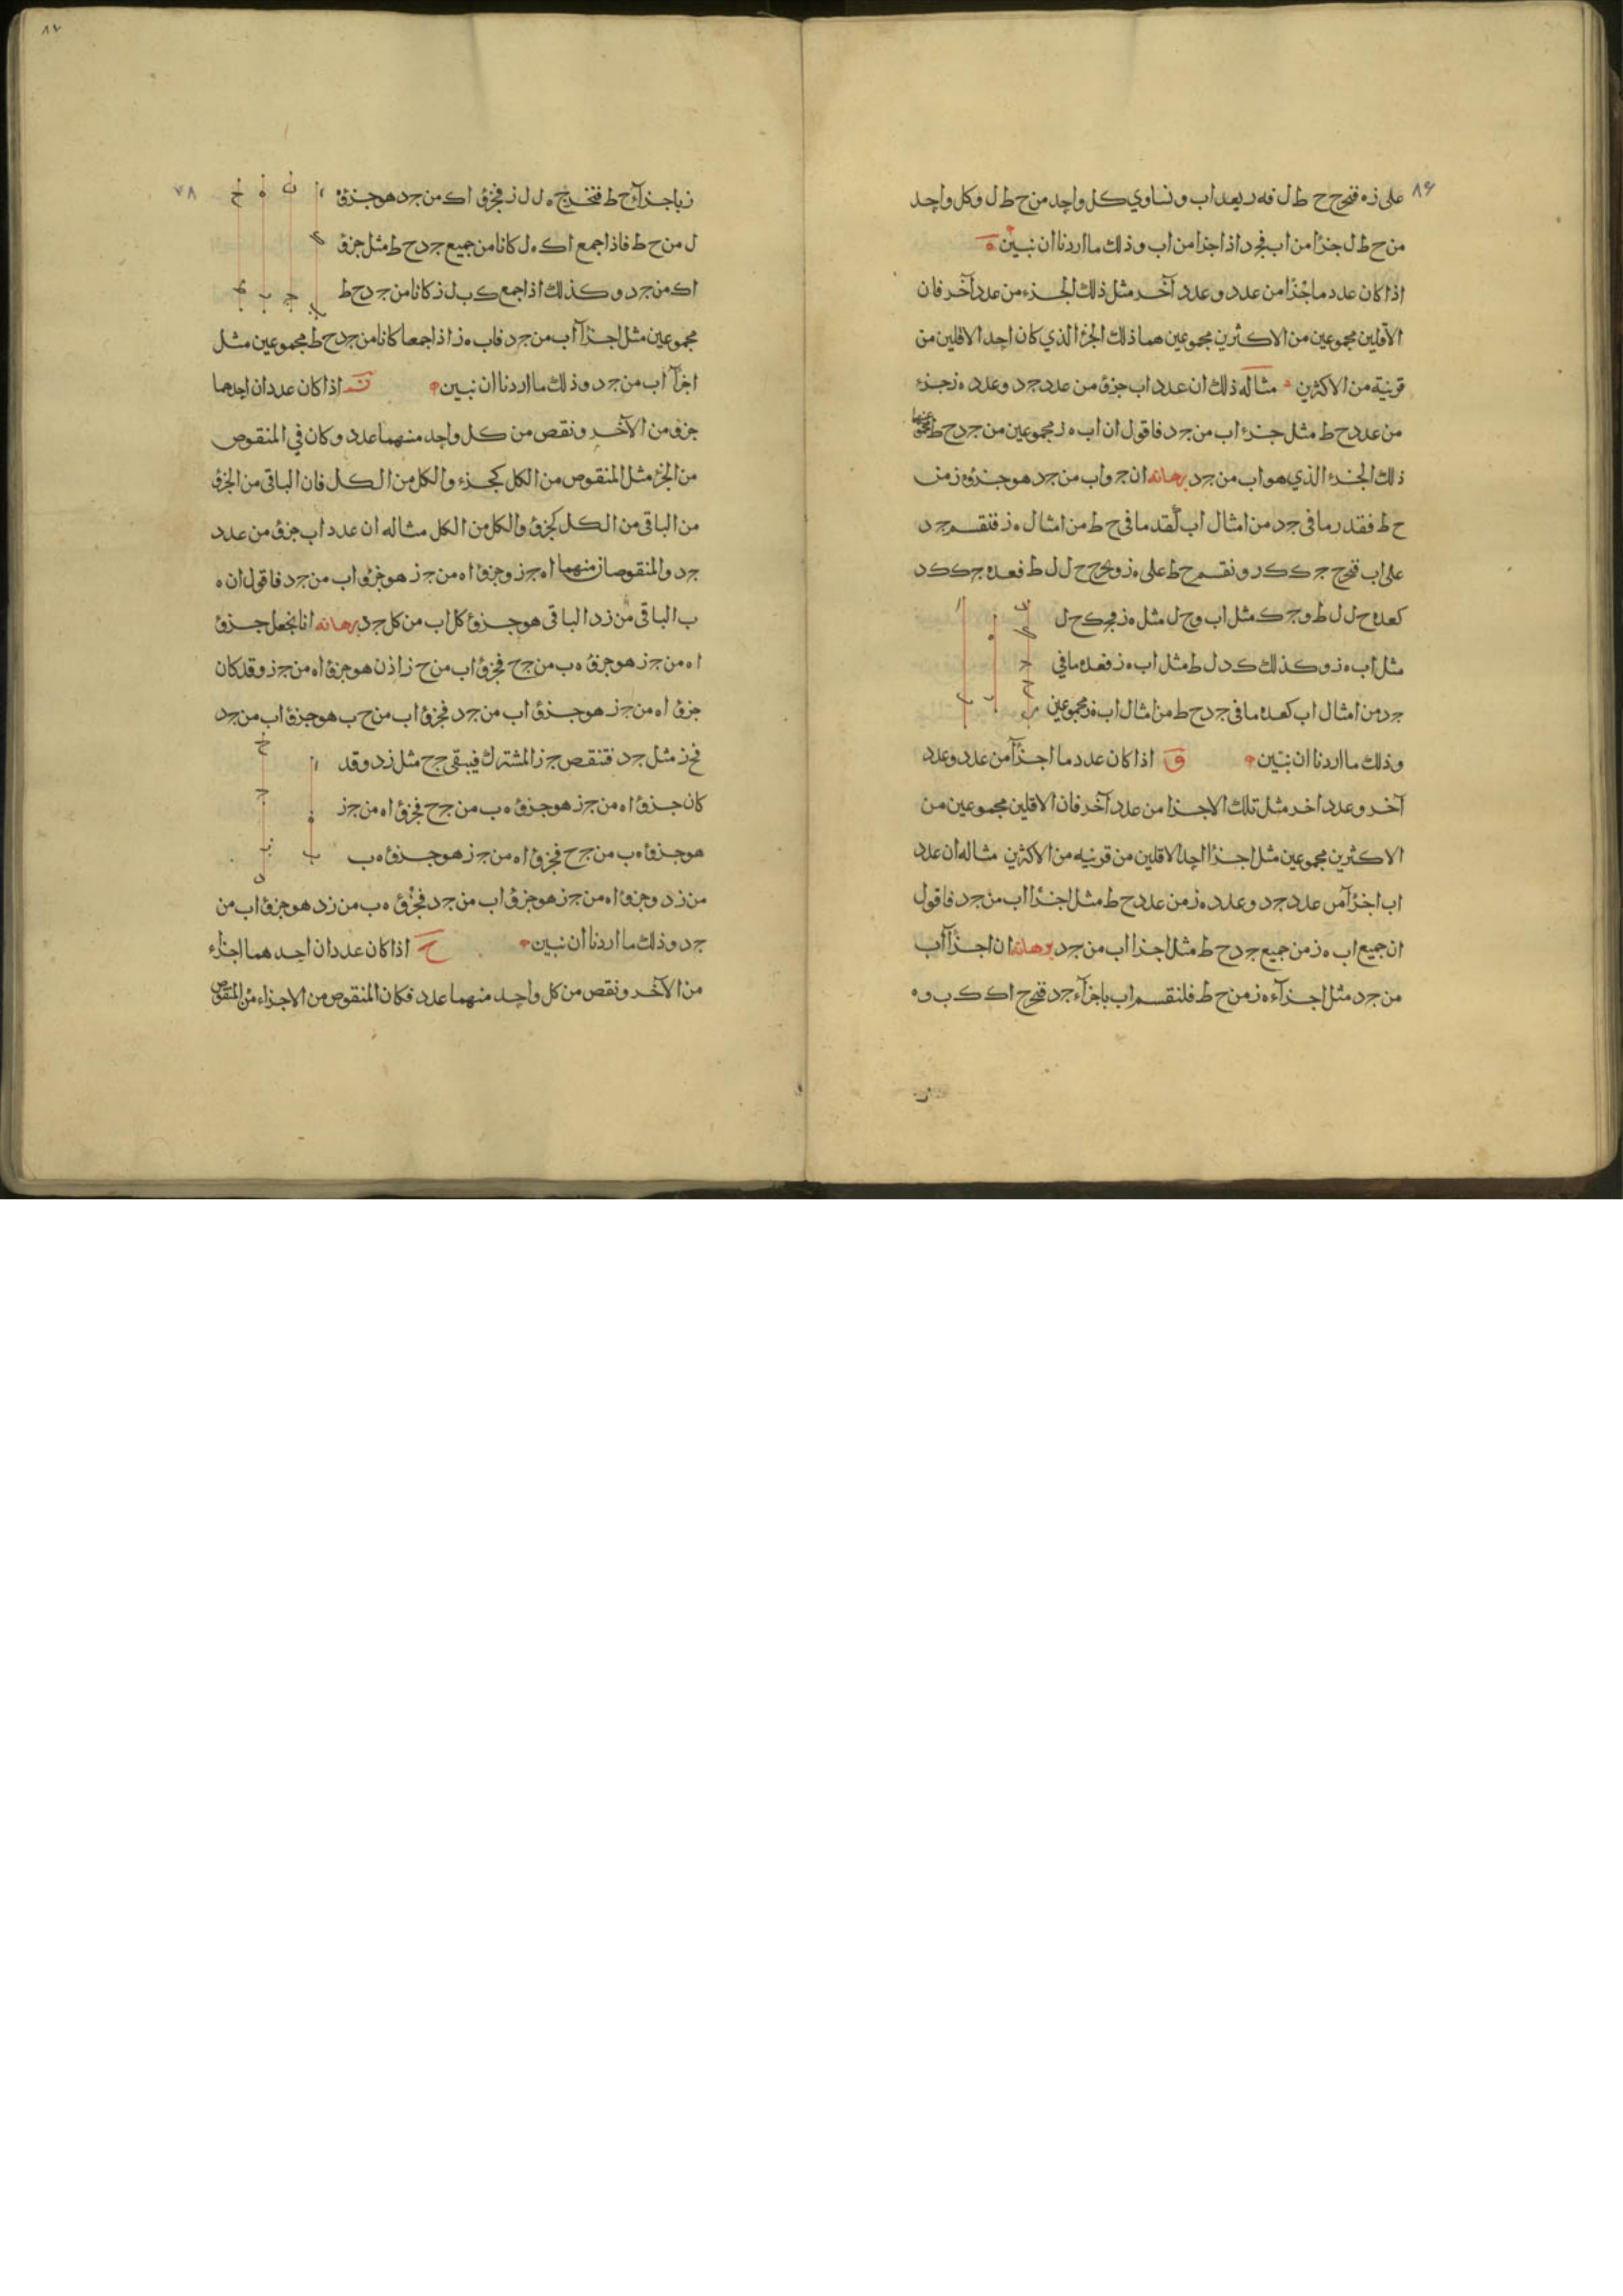 ٨٦
على زه فتخرج ح ط ل فه ر يعد اب ونساوي كل واحد من ح ط ل وكل واحد
من ح ط ل جزءا من اب فجد اذا اجزا من اب وذلك ما اردنا ان نبين ه
اذا كان عدد ما جزءا من عدد وعدد آخر مثل ذلك الجزء من عدد آخر فان
الاقلين مجموعين من الاكثرين مجموعين هما ذلك الجزء الذي كان احد الاقلين من
قرينه من الاكثرين مثاله ذلك ان عدد اب جزؤ من عدد جد وعدد ه ز جزء
من عدد ح ط مثل جزء اب من جد فاقول ان اب ه ز مجموعين من جد ح ط
ذلك الجزء الذي هو اب من جد برهانه ان جزؤ اب من جد هو جزؤ ه ز من
ح ط فقدر ما في جد من امثال اب بقدر ما في ح ط من امثال ه ز فنقسم جد
على اب فتخرج ج ك ك د ونقسم ح ط على ه ز ويخرج ح ل ل ط فعده ج ك ك د
كعده ح ل ل ط وج ك مثل اب وح ل مثل ه ز فج ك ح ل
مثل اب ه ز وكذلك ك د ل ط مثل اب ه ز فعده ما في
جد من امثال اب كعده ما في جد ح ط من امثال اب ه ز مجموعين
وذلك ما اردنا ان نبين و اذا كان عدد ما اجزآ من عدد وعدد
آخر وعدد اخر مثل تلك الاجزا من عدد آخر فان الاقلين مجموعين من
الاكثرين مجموعين مثل اجزا احد الاقلين من قرينه من الاكثرين مثاله ان عدد
اب اجزآ من عدد جد وعدد ه ز من عدد ح ط مثل اجزا اب من جد فاقول
ان جميع اب ه ز من جميع جد ح ط مثل اجزا اب من جد برهانه ان اجزآ اب
من جد مثل اجزآء ه ز من ح ط فلنقسم اب باجزآء جد فتخرج اك ك ب وه
٨٧
٧٨
ز باجزآء ح ط فتخرج ه ل ل ز فجزؤ اك من جد هو جزؤ ه
ل من ح ط فاذا جمع اك ه ل كانا من جميع جد ح ط مثل جزؤ
اك من جد وكذلك اذا جمع ك ب ل ز كانا من جد ح ط
مجموعين مثل اجزآ اب من جد فاب ه ز اذا جمعا كانا من جد ح ط مجموعين مثل
اجزآ اب من جد وذلك ما اردنا ان نبين ز اذا كان عددان احدهما
جزؤ من الآخر ونقص من كل واحد منهما عدد وكان في المنقوص
من الجزء مثل المنقوص من الكل كجزء والكل من الكل فان الباقى من الجزؤ
من الباقى من الكل كجزؤ والكل من الكل مثاله ان عدد اب جزؤ من عدد
جد والمنقوصان منهما اه جز وجزؤ اه من جز هو جزؤ اب من جد فاقول ان ه
ب الباقى من زد الباقى هو جزؤ كل اب من كل جد برهانه انا نجعل جزؤ
اه من جز هو جزؤ ه ب من جح فجزؤ اب من ح ز اذن هو جزؤ اه من جز وقد كان
جزؤ اه من جز هو جزؤ اب من جد فجزؤ اب من ح ب هو جزؤ اب من جد
فح ز مثل جد فننقص جز المشترك فيبقى جح مثل زد وقد
كان جزؤ اه من جز هو جزؤ ه ب من جح فجزؤ اه من جز
هو جزؤ ه ب من جح فجزؤ اه من جز هو جزؤ ه ب
من زد وجزؤ اه من جز هو جزؤ اب من جد فجزؤ ه ب من زد هو جزؤ اب من
جد وذلك ما اردنا ان نبين ح اذا كان عددان احدهما اجزاء
من الآخر ونقص من كل واحد منهما عدد فكان المنقوص من الاجزاء من المنقوص